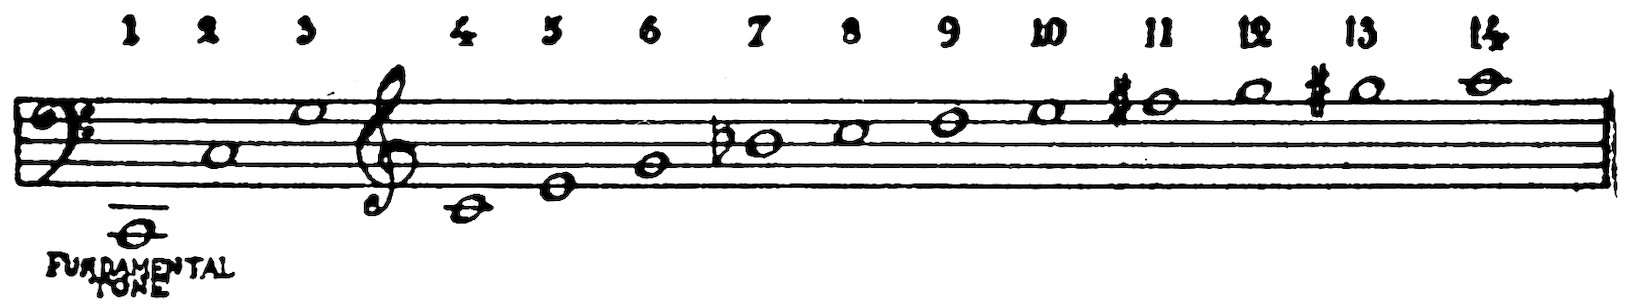 1 2 3 4 5 6 7 8 9 10 11 12 13 14
FUNDAMENTAL
TONE